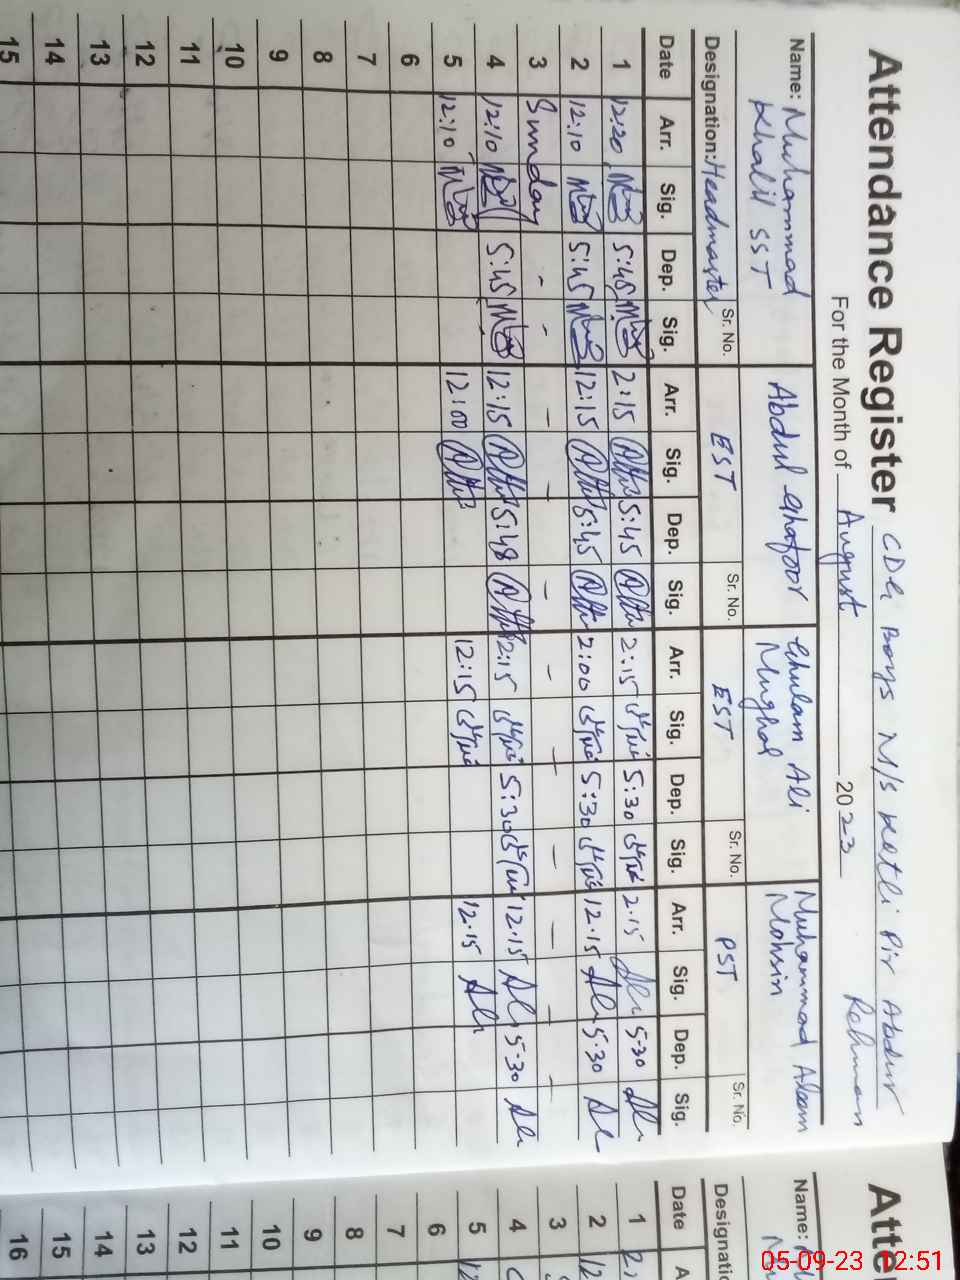 Attendance Register CDG Boys M/S Ketli Pir Abdur Rehman
For the Month of August 2023
Name: Muhammad Khalil SST
Abdul Ghafoor
Ghulam Ali Mughal
Muhammad Aleem Mohsin
Designation: Headmaster Sr. No. EST Sr. No. EST Sr. No. PST Sr. No.
Date Arr. Sig. Dep. Sig. Arr. Sig. Dep. Sig. Arr. Sig. Dep. Sig. Arr. Sig. Dep. Sig.
1 12:20 5:45 2:15 5:45 2:15 5:30 2.15 5-30
2 12:10 5:45 12:15 5:45 2:00 5:30 12.15 5.30
3 Sunday - - - - - - - - - - - -
4 12:10 5:45 12:15 5:48 12:15 5:30 12.15 5.30
5 12:10 12:00 12:15 12.15
6
7
8
9
10
11
12
13
14
15
Atte
Name:
Designati
Date A
1
2 12
3
4
5 12
6
7
8
9
10
11
12
13
14
15
16
05-09-23 12:51